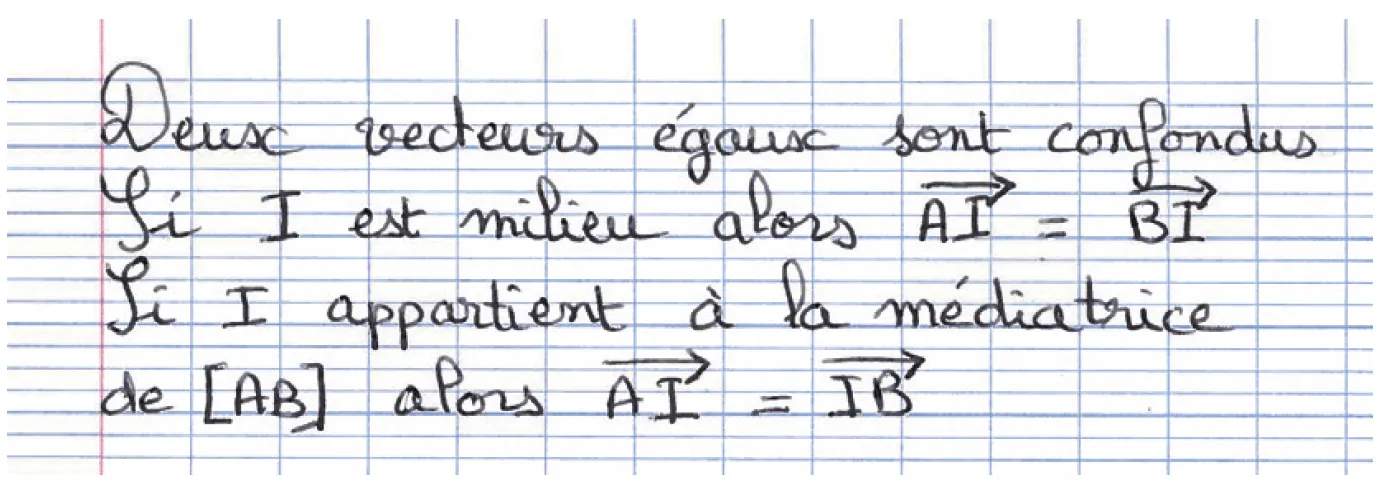 Deux vecteurs égaux sont confondus
Si I est milieu alors \overrightarrow{AI} = \overrightarrow{BI}
Si I appartient à la médiatrice
de [AB] alors \overrightarrow{AI} = \overrightarrow{IB}